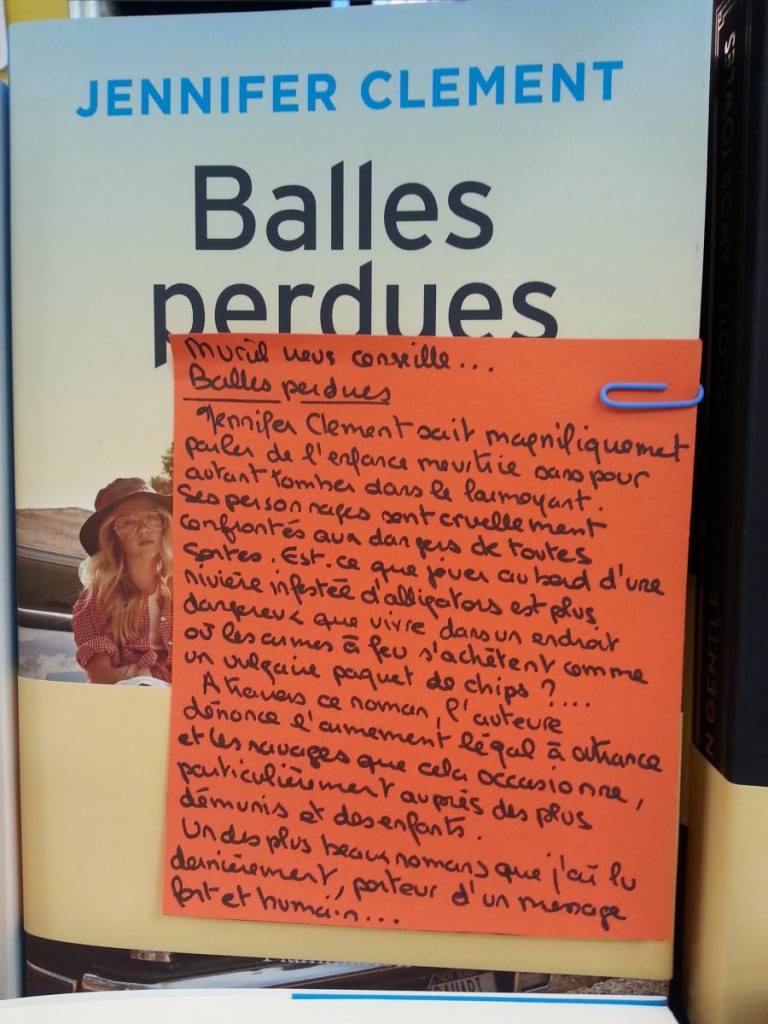 JENNIFER CLEMENT
Balles
perdues
Muriel vous conseille...
Balles perdues
Jennifer Clement sait magnifiquement
parler de l'enfance meurtrie sans pour
autant tomber dans le larmoyant.
Ses personnages sont cruellement
confrontés aux dangers de toutes
sortes. Est-ce que jouer au bord d'une
rivière infestée d'alligators est plus
dangereux que vivre dans un endroit
où les armes à feu s'achètent comme
un vulgaire paquet de chips ?....
A travers ce roman, l'auteure
dénonce l'armement légal à outrance
et les ravages que cela occasionne,
particulièrement auprès des plus
démunis et des enfants.
Un des plus beaux romans que j'ai lu
dernièrement, porteur d'un message
fort et humain...
AMOR TOWLES
UN GENTLEMAN À MOSCOU